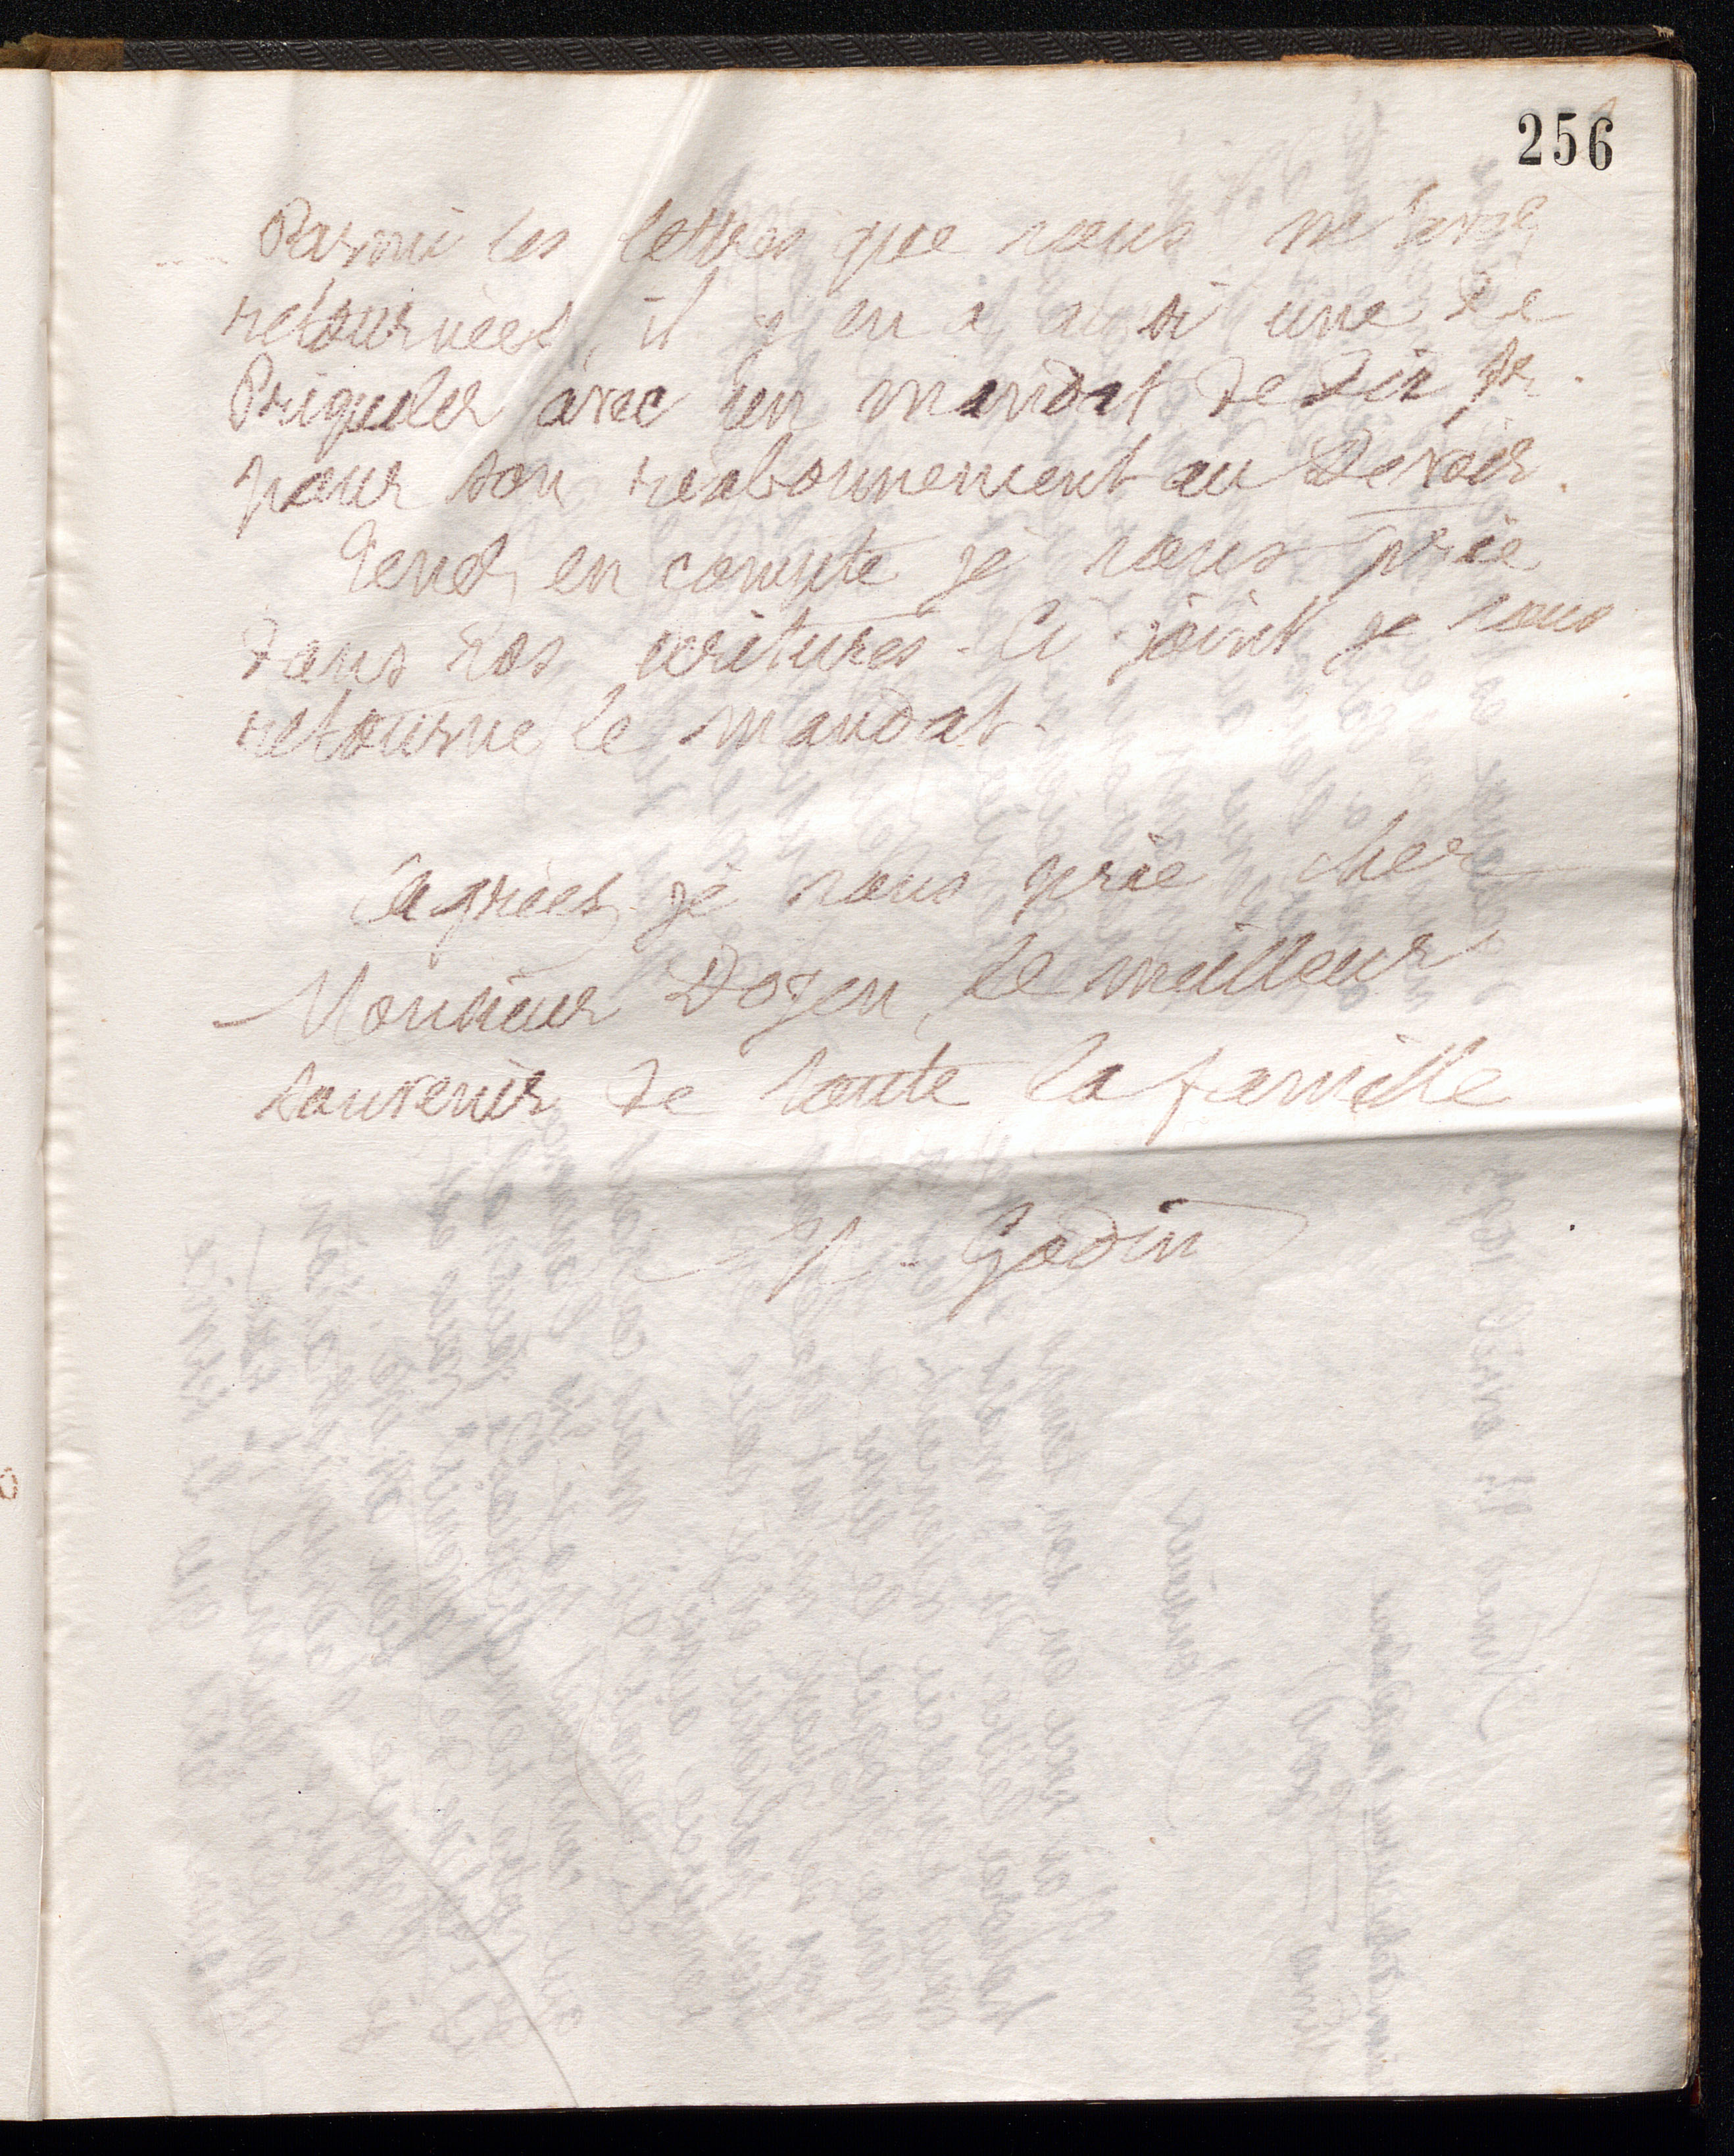 256
Parmi les lettres que vous m'avez
retournées, il y en a aussi une de
avec un mandat de dix fr.
pour son réabonnement au Devoir.
Tenez en compte je vous prie
dans vos écritures. Ci-joint je vous
retourne le mandat.
Agréez, je vous prie cher
Monsieur Doyen, le meilleur
souvenir de toute la famille
Godin